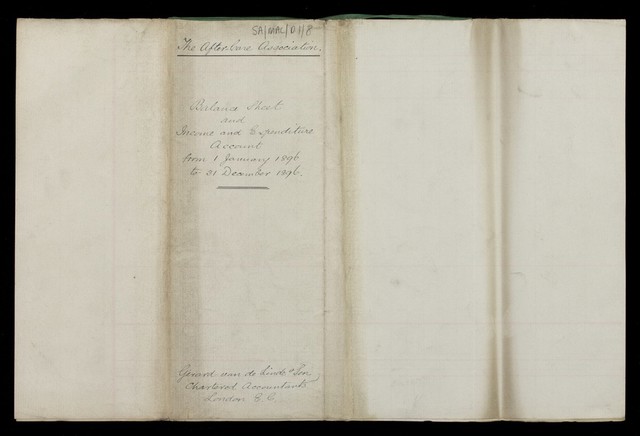 SA/MAC/D1/8
The After Care Association.
Balance Sheet
and
Income and Expenditure
Account
from 1 January 1896
to 31 December 1896.
Gerard van de Linde & Son,
Chartered Accountants
London E.C.